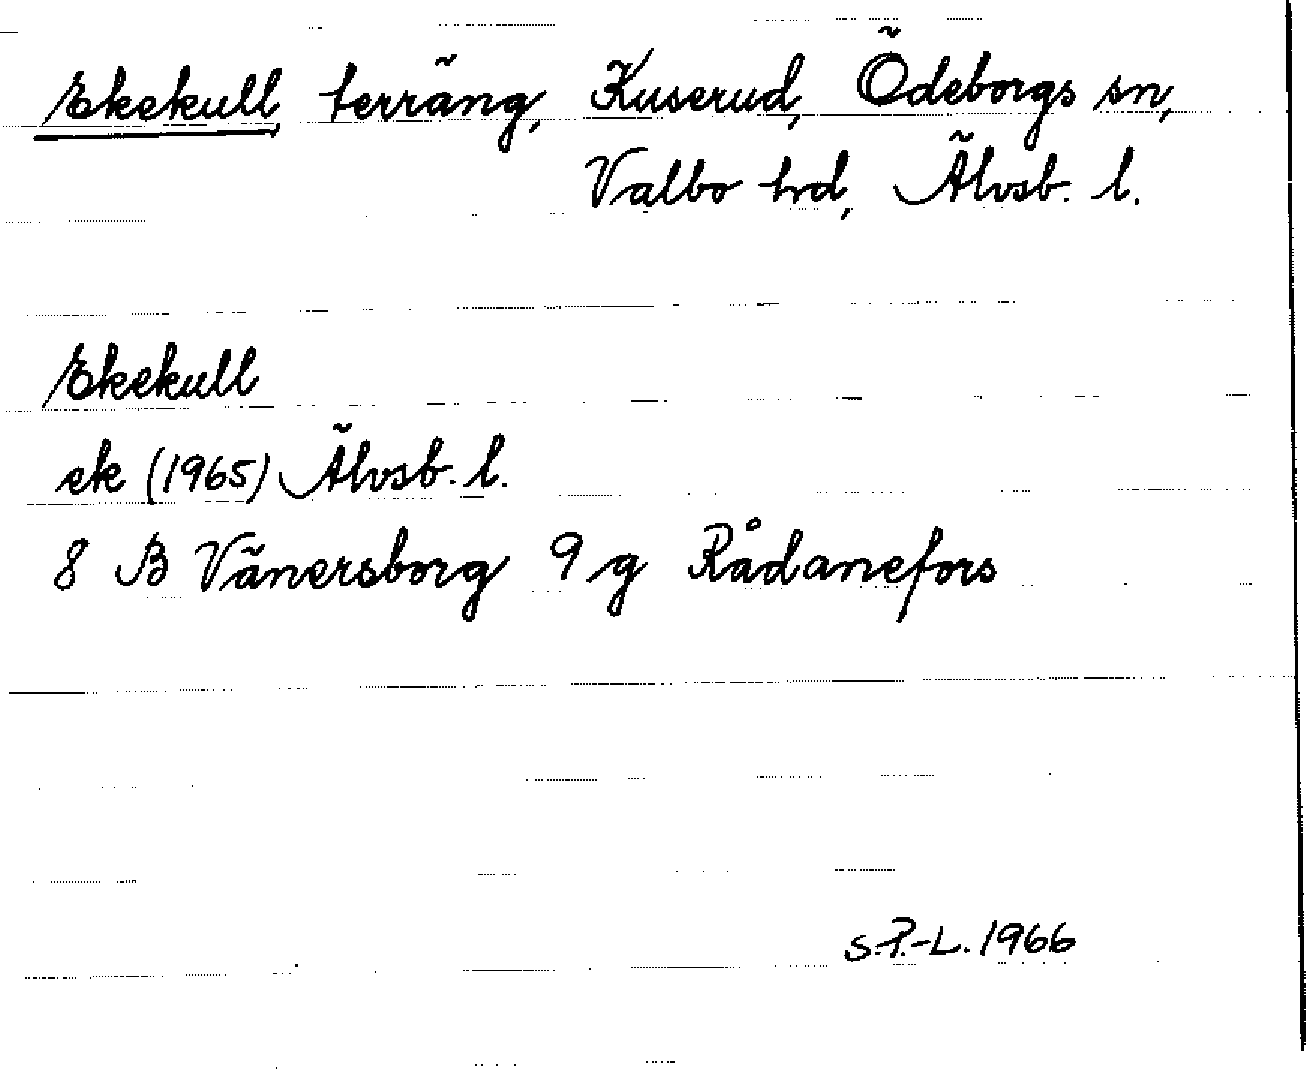 Ekekull terräng, Kuserud, Ödeborgs sn,
Valbo hd, Älvsb. l.
Ekekull
ek (1965) Älvsb. l.
8 B Vänersborg 9 g Rådanefors
S.P.-L. 1966